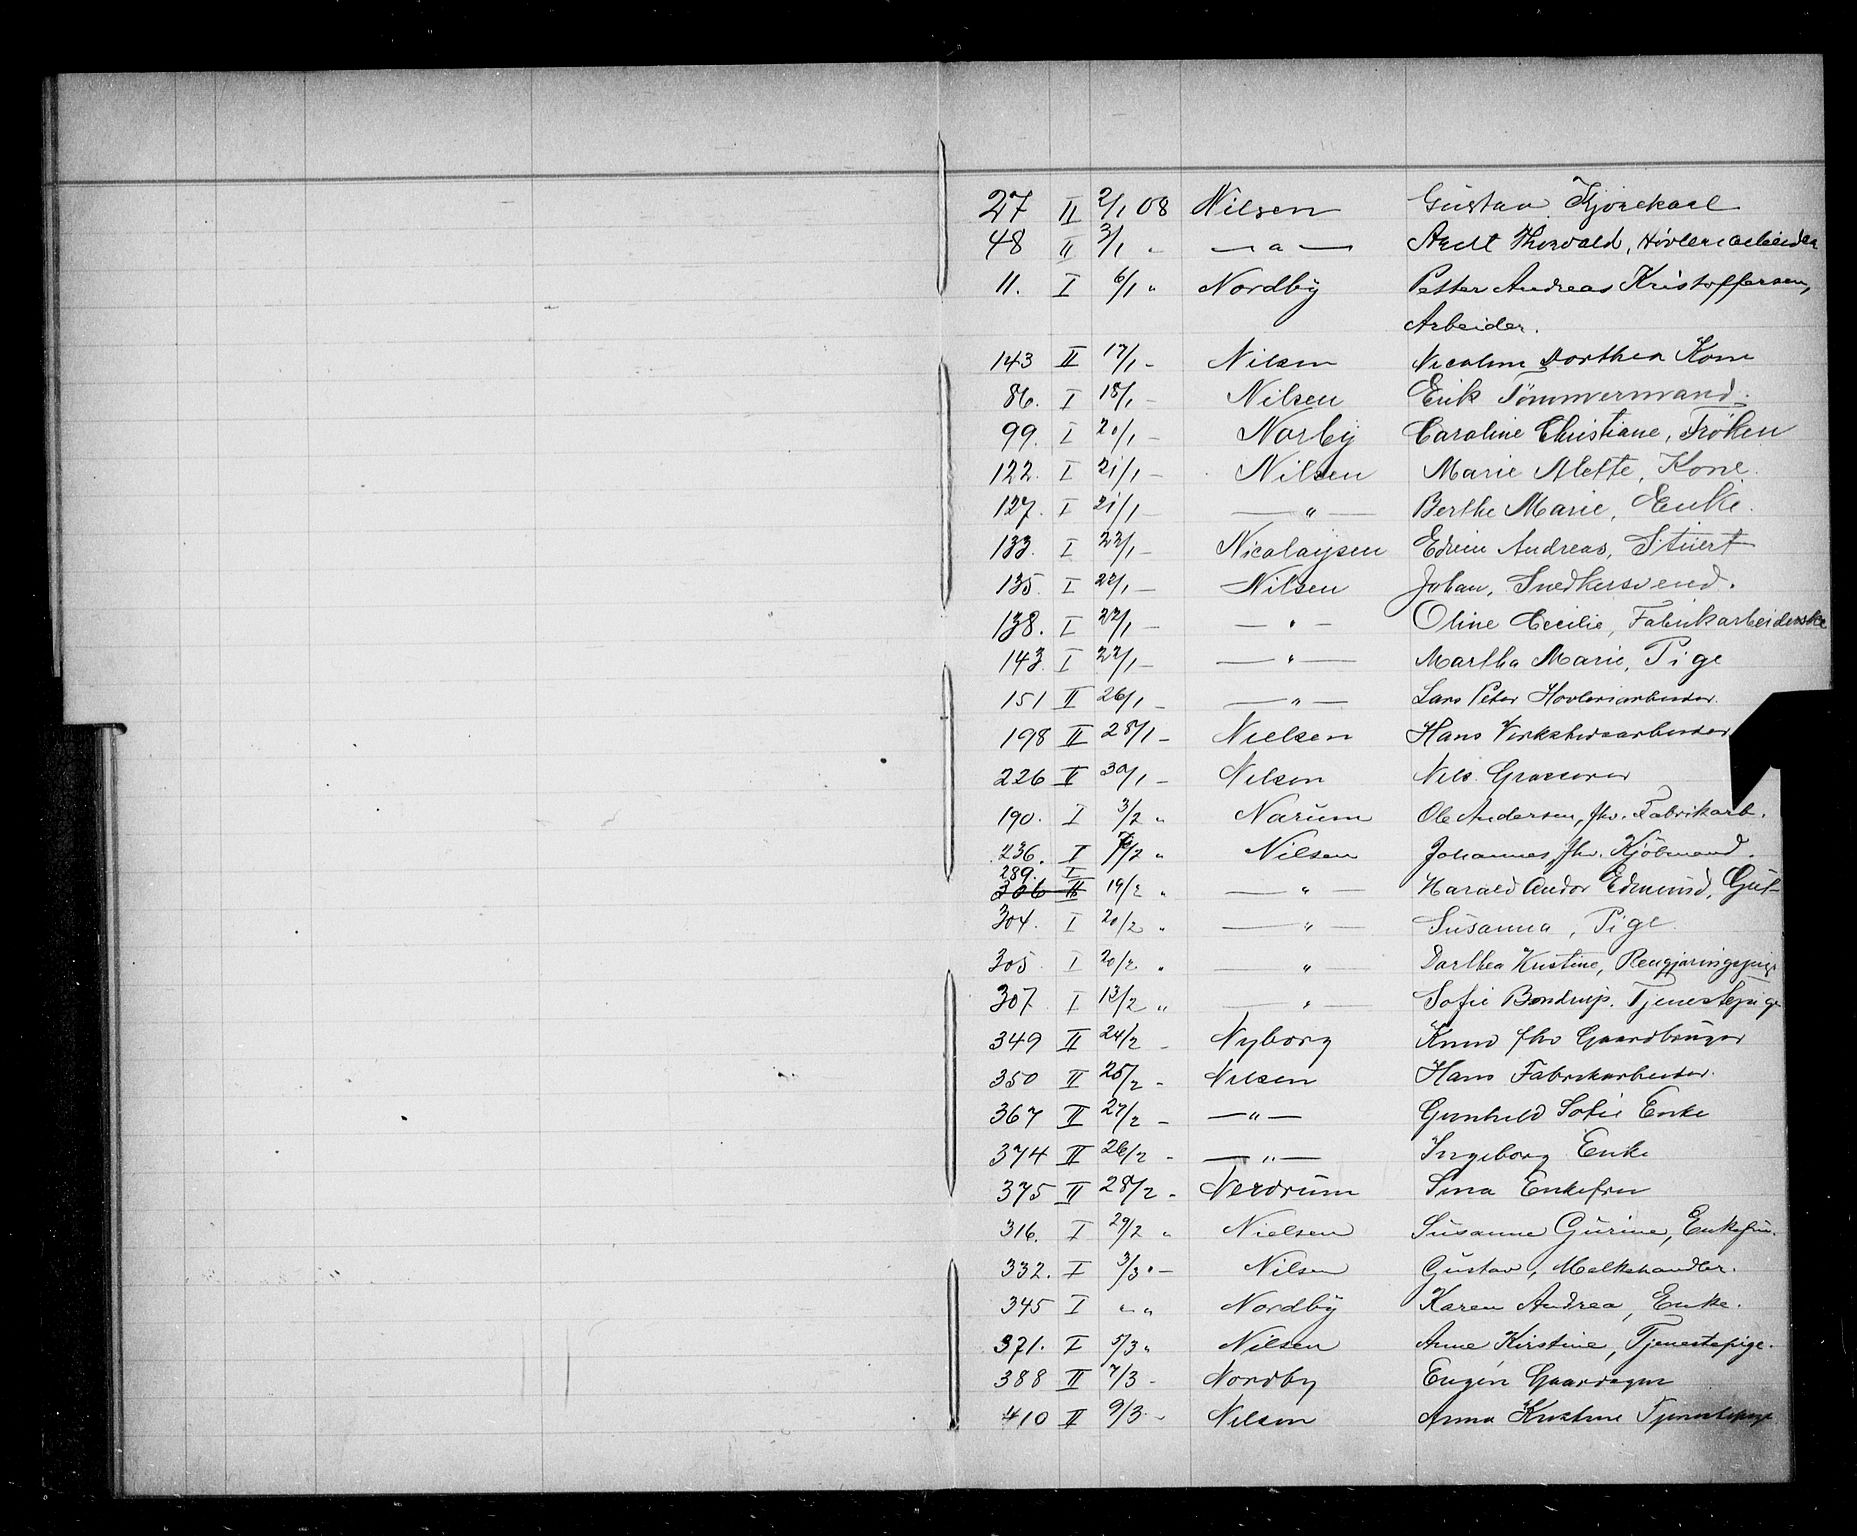 27 II 2/1 08 Nilsen Gustav Kjørekarl
48 II 3/1 " — " — Arelt Thorvald, Høvleriarbeider
11. I 6/1 " Nordby Petter Andreas Kristoffersen,
Arbeider.
143 II 17/1 - Nilsen Nicoline Dorthea Kone
86. I 18/1 - Nilsen Erik Tömmermand.
99. I 20/1 - Norby Caroline Christiane, Fröken
122. I 21/1 - Nilsen Marie Alette, Kone.
127. I 21/1 - — " — Berthe Marie, Enke.
133. I 22/1 - Nicolaysen Edvin Andreas, Stuert
135. I 22/1 - Nilsen Johan, Snedkersvend.
138. I 22/1 - — " — Oline Cecilie, Fabrikarbeiderske
143. I 22/1 - — " — Martha Marie, Pige
151 II 26/1 - — " — Lars Peter Hovleriarbeider.
198 II 28/1 - Nielsen Hans Verkstedsarbeider
226 II 30/1 - Nilsen Nils Grosserer
190. I 3/2 " Narum Ole Andersen, fhv. Fabrikarb.
236. I 7/2 " Nilsen Johannes, fhv. Kjöbmand.
289. I
306 II 19/2 " — " — Harald Andor Edmund, Gut
304. I 20/2 " — " — Susanna, Pige
305 I 20/2 " " Dorthea Kristine, Rengjøringspige
307 I 13/2 " — " — Sofie Bondrup. Tjenestepige
349 II 24/2 - Nyborg Knud fhv Gaardbruger
350 II 25/2 - Nilsen Hans Fabrikarbeider.
367 II 27/2 - — " — Gunhild Sofie Enke
374 II 26/2 - — " — Ingeborg Enke
375 II 28/2 - Nerdrum Sina Enkefru
316. I 29/2 " Nielsen Susanne Gurine, Enkefru.
332. I 3/3 - Nilsen Gustav, Melkehandler.
345 I " " Nordby Karen Andrea, Enke.
371. I 5/3 " Nilsen Anne Kirstine, Tjenestepige.
388 II 7/3 - Nordby Eugen Gaardeger
410 II 9/3 - Nilsen Anna Kristine Tjenestepige